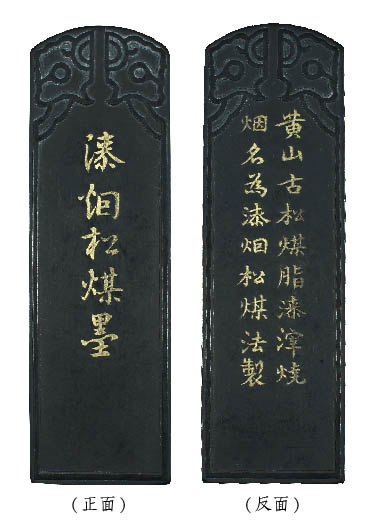 漆烟松煤墨
黄山古松煤脂漆渾燒
烟名為漆烟松煤法製
(正面)
(反面)